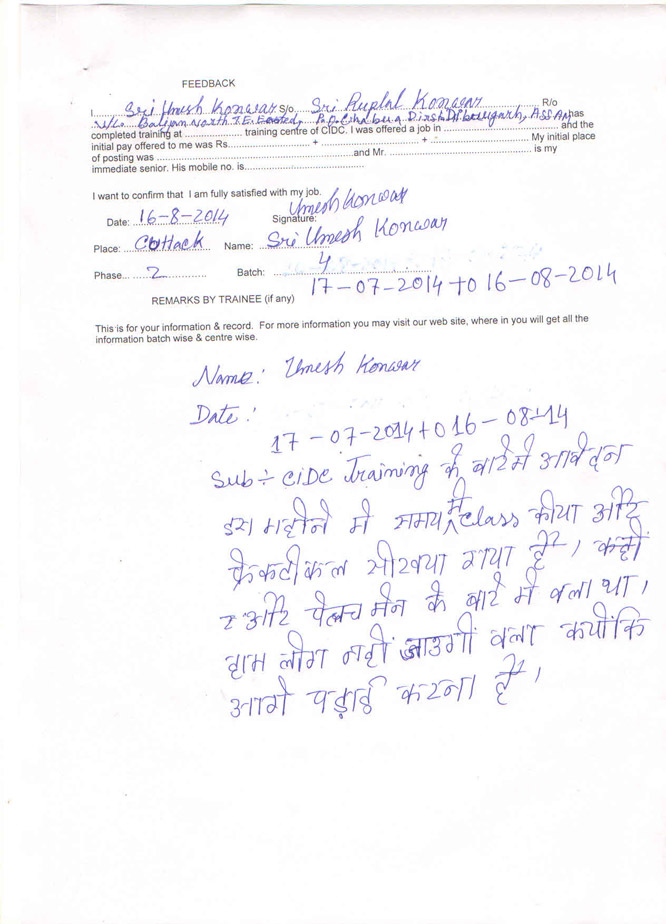 FEEDBACK
I Sri Umesh Konwar S/o Sri Ruplal Konwar R/o
North T.E. P.O. Chabua Dist Dibrugarh, ASSAM has
completed training at .................... training centre of CIDC. I was offered a job in .............................. and the
initial pay offered to me was Rs. .................... + .................... + .................... My initial place
of posting was .................... and Mr. .................... is my
immediate senior. His mobile no. is....................
I want to confirm that I am fully satisfied with my job.
Umesh Konwar
Date: 16-8-2014 Signature:
Place: Cuttack Name: Sri Umesh Konwar
Phase... 2 Batch: 4
17-07-2014 to 16-08-2014
REMARKS BY TRAINEE (if any)
This is for your information & record. For more information you may visit our web site, where in you will get all the
information batch wise & centre wise.
Name: Umesh Konwar
Date:
17-07-2014 to 16-08-14
Sub ÷ CIDC Training के बारे मे आवेदन
इस महीने मे समय में Class कीया और
प्रेकटीकल सीखया गया है।
और मेन के बारे में बला था।
हाम लोग नहीं जाउगी बला क्योंकि
आगे पड़ाई करना है।